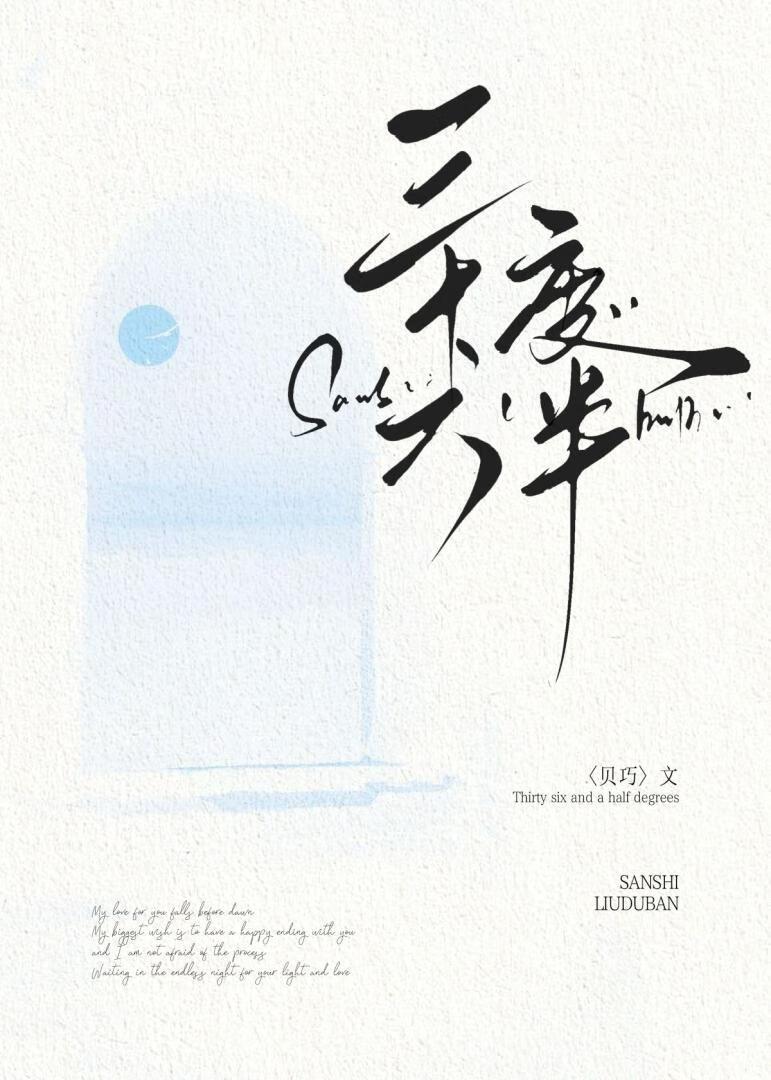 三十六度半
〈贝巧〉文
Thirty six and a half degrees
SANSHI
LIUDUBAN
My love for you falls before dawn
My biggest wish is to have a happy ending with you
and I am not afraid of the process
Waiting in the endless night for your light and love